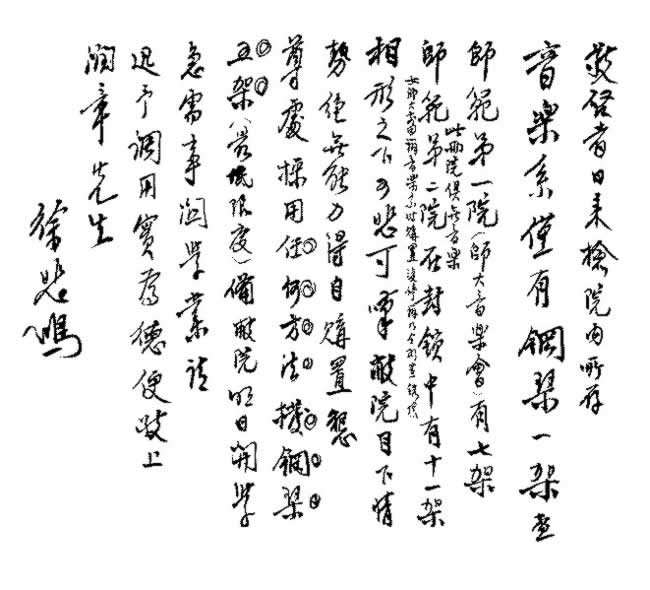 敬啓者日來檢院內所存
音樂系僅有鋼琴一架查
師範第一院（師大音樂會）有七架
此兩院俱無音樂
師範第二院在封鎖中有十一架
女師大
相形之下可悲可 敝院目下情
勢絕無能力得自購置懇
尊處採用任何方法撥鋼琴
五架（最低限度）備敝院明日開學
急需事關學業請
迅予調用實為德便敬上
潤章先生
徐悲鴻